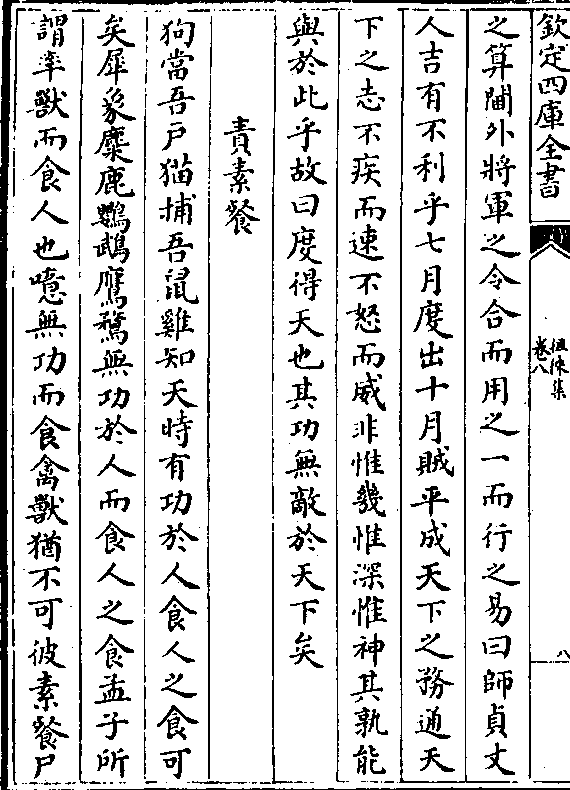 欽定四庫全書
徂徠集
卷八
八
之算閫外將軍之令合而用之一而行之易曰師貞丈
人吉有不利乎七月度出十月賊平成天下之務通天
下之志不疾而速不怒而威非惟幾惟深惟神其孰能
與於此乎故曰度得天也其功無敵於天下矣
責素餐
狗當吾戶猫捕吾鼠雞知天時有功於人食人之食可
矣犀象麋鹿鸚鵡鷹鶩無功於人而食人之食孟子所
謂率獸而食人也噫無功而食禽獸猶不可彼素餐尸